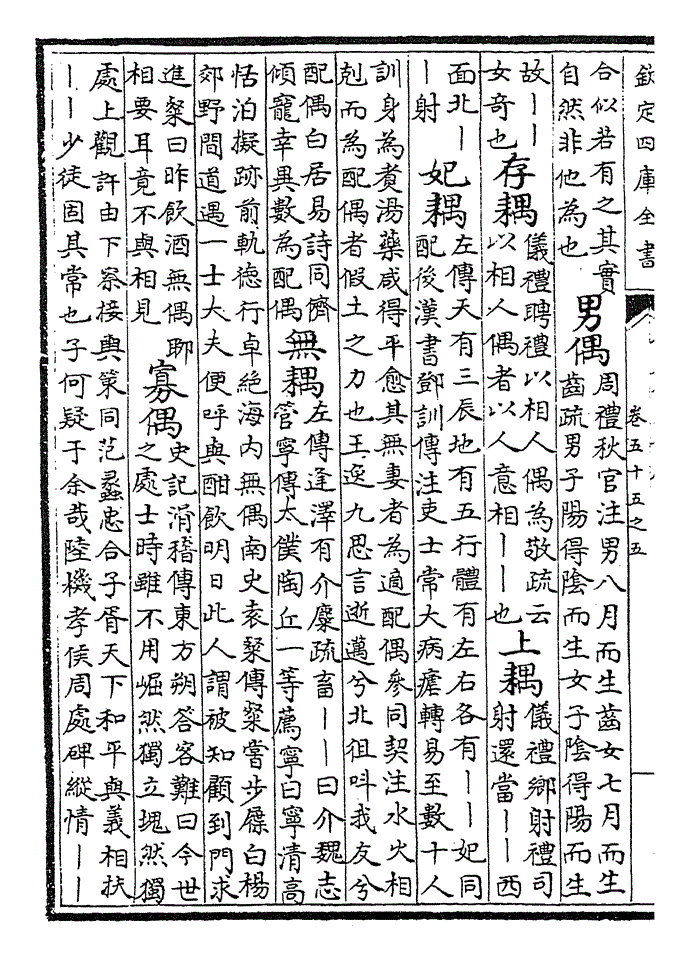 欽定四庫全書
卷五十五之五
合似若有之其實
自然非他為也
男偶
周禮秋官注男八月而生齒女七月而生
齒疏男子陽得陰而生女子陰得陽而生
故丨丨
女奇也
存耦
儀禮聘禮以相人偶為敬疏云
以相人偶者以人意相丨丨也
上耦
儀禮鄉射禮司
射還當丨丨西
面北丨
丨射
妃耦
左傳天有三辰地有五行體有左右各有丨丨妃同
配後漢書鄧訓傳注吏士常大病瘧轉易至數十人
訓身為煑湯藥咸得平愈其無妻者為適配偶參同契注水火相
剋而為配偶者假土之力也王逸九思言逝邁兮北徂呌我友兮
配偶白居易詩同儕
傾寵幸異數為配偶
無耦
左傳逢澤有介麇疏畜丨丨曰介魏志
管寧傳太僕陶丘一等薦寧曰寧清高
恬泊擬跡前軌徳行卓絶海内無偶南史袁粲傳粲當步屧白楊
郊野間道遇一士大夫便呼與酣飲明日此人謂被知顧到門求
進粲曰昨飲酒無偶聊
相要耳竟不與相見
寡偶
史記滑稽傳東方朔答客難曰今世
之處士時雖不用崛然獨立塊然獨
處上觀許由下察接輿策同范蠡忠合子胥天下和平與義相扶
丨丨少徒固其常也子何疑于余哉陸機孝侯周處碑縱情丨丨